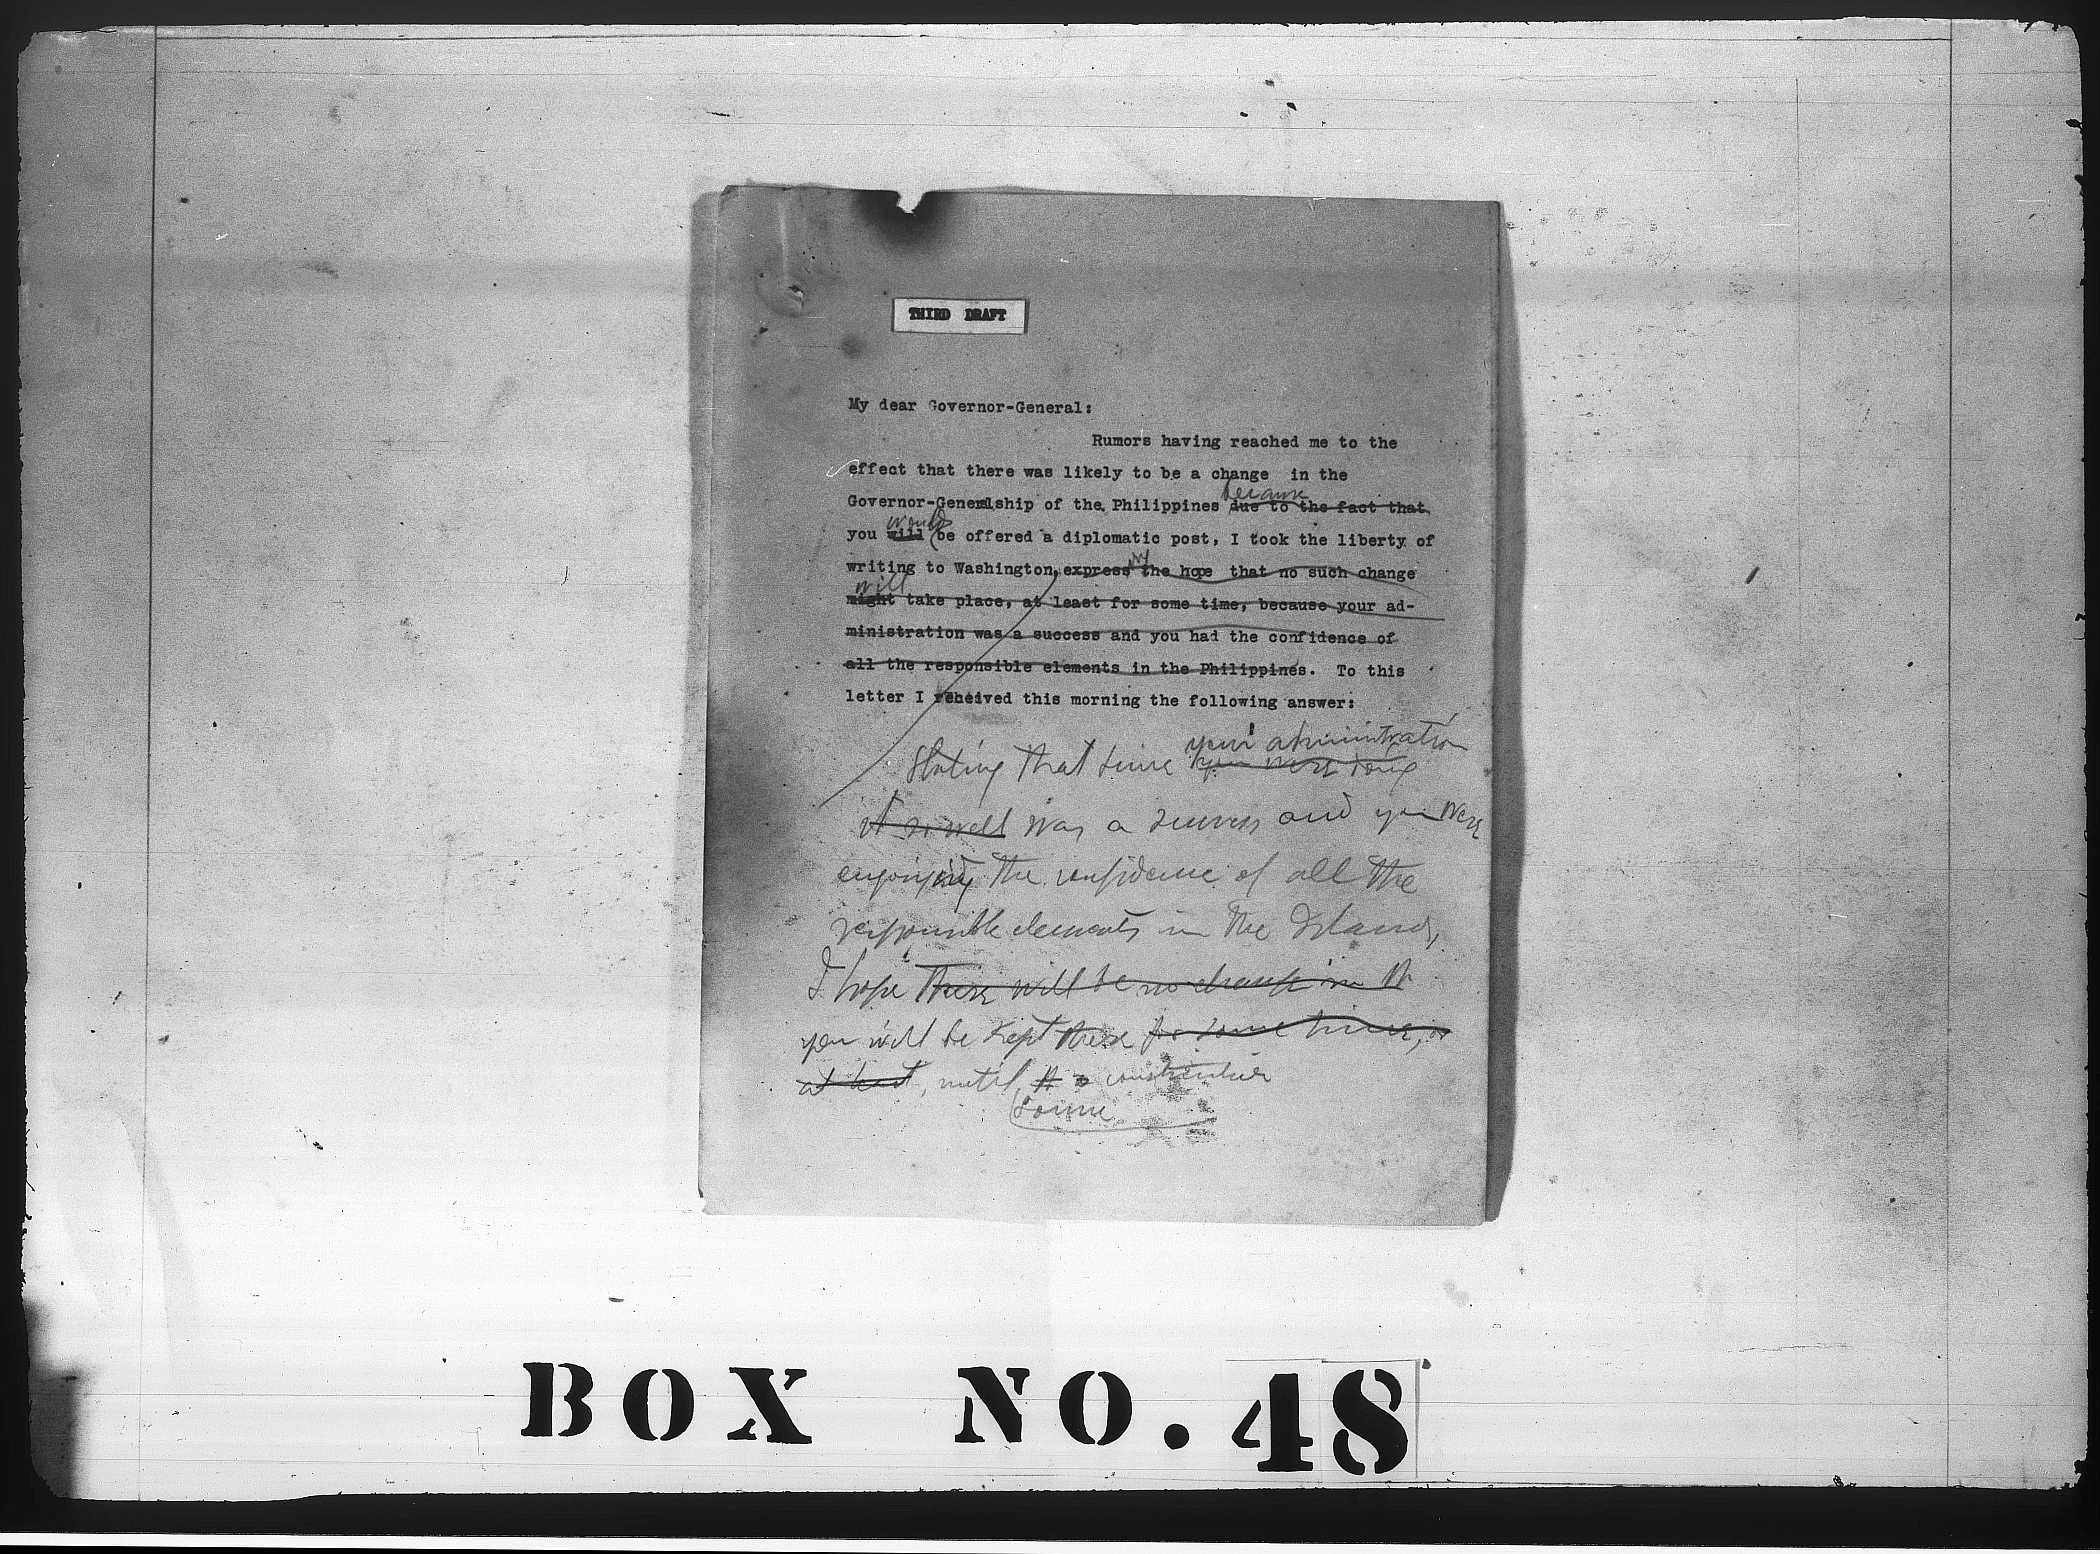 THIRD DRAFT
My dear Governor-General:
Rumors having reached me to the
effect that there was likely to be a change in the
because
Governor-Generalship of the Philippines due to the fact that
would
you will be offered a diplomatic post, I took the liberty of
my
writing to Washington, express the hope that no such change
will
might take place, at least for some time, because your ad-
ministration was a success and you had the confidence of
all the responsible elements in the Philippines. To this
letter I received this morning the following answer:
your administration
Stating that since you were doing
it so well was a success and you were
enjoying the confidence of all the
responsible elements in the Islands,
I hope there will be no change in
you will be kept there for some time,
at least, until a
some
BOX NO. 48